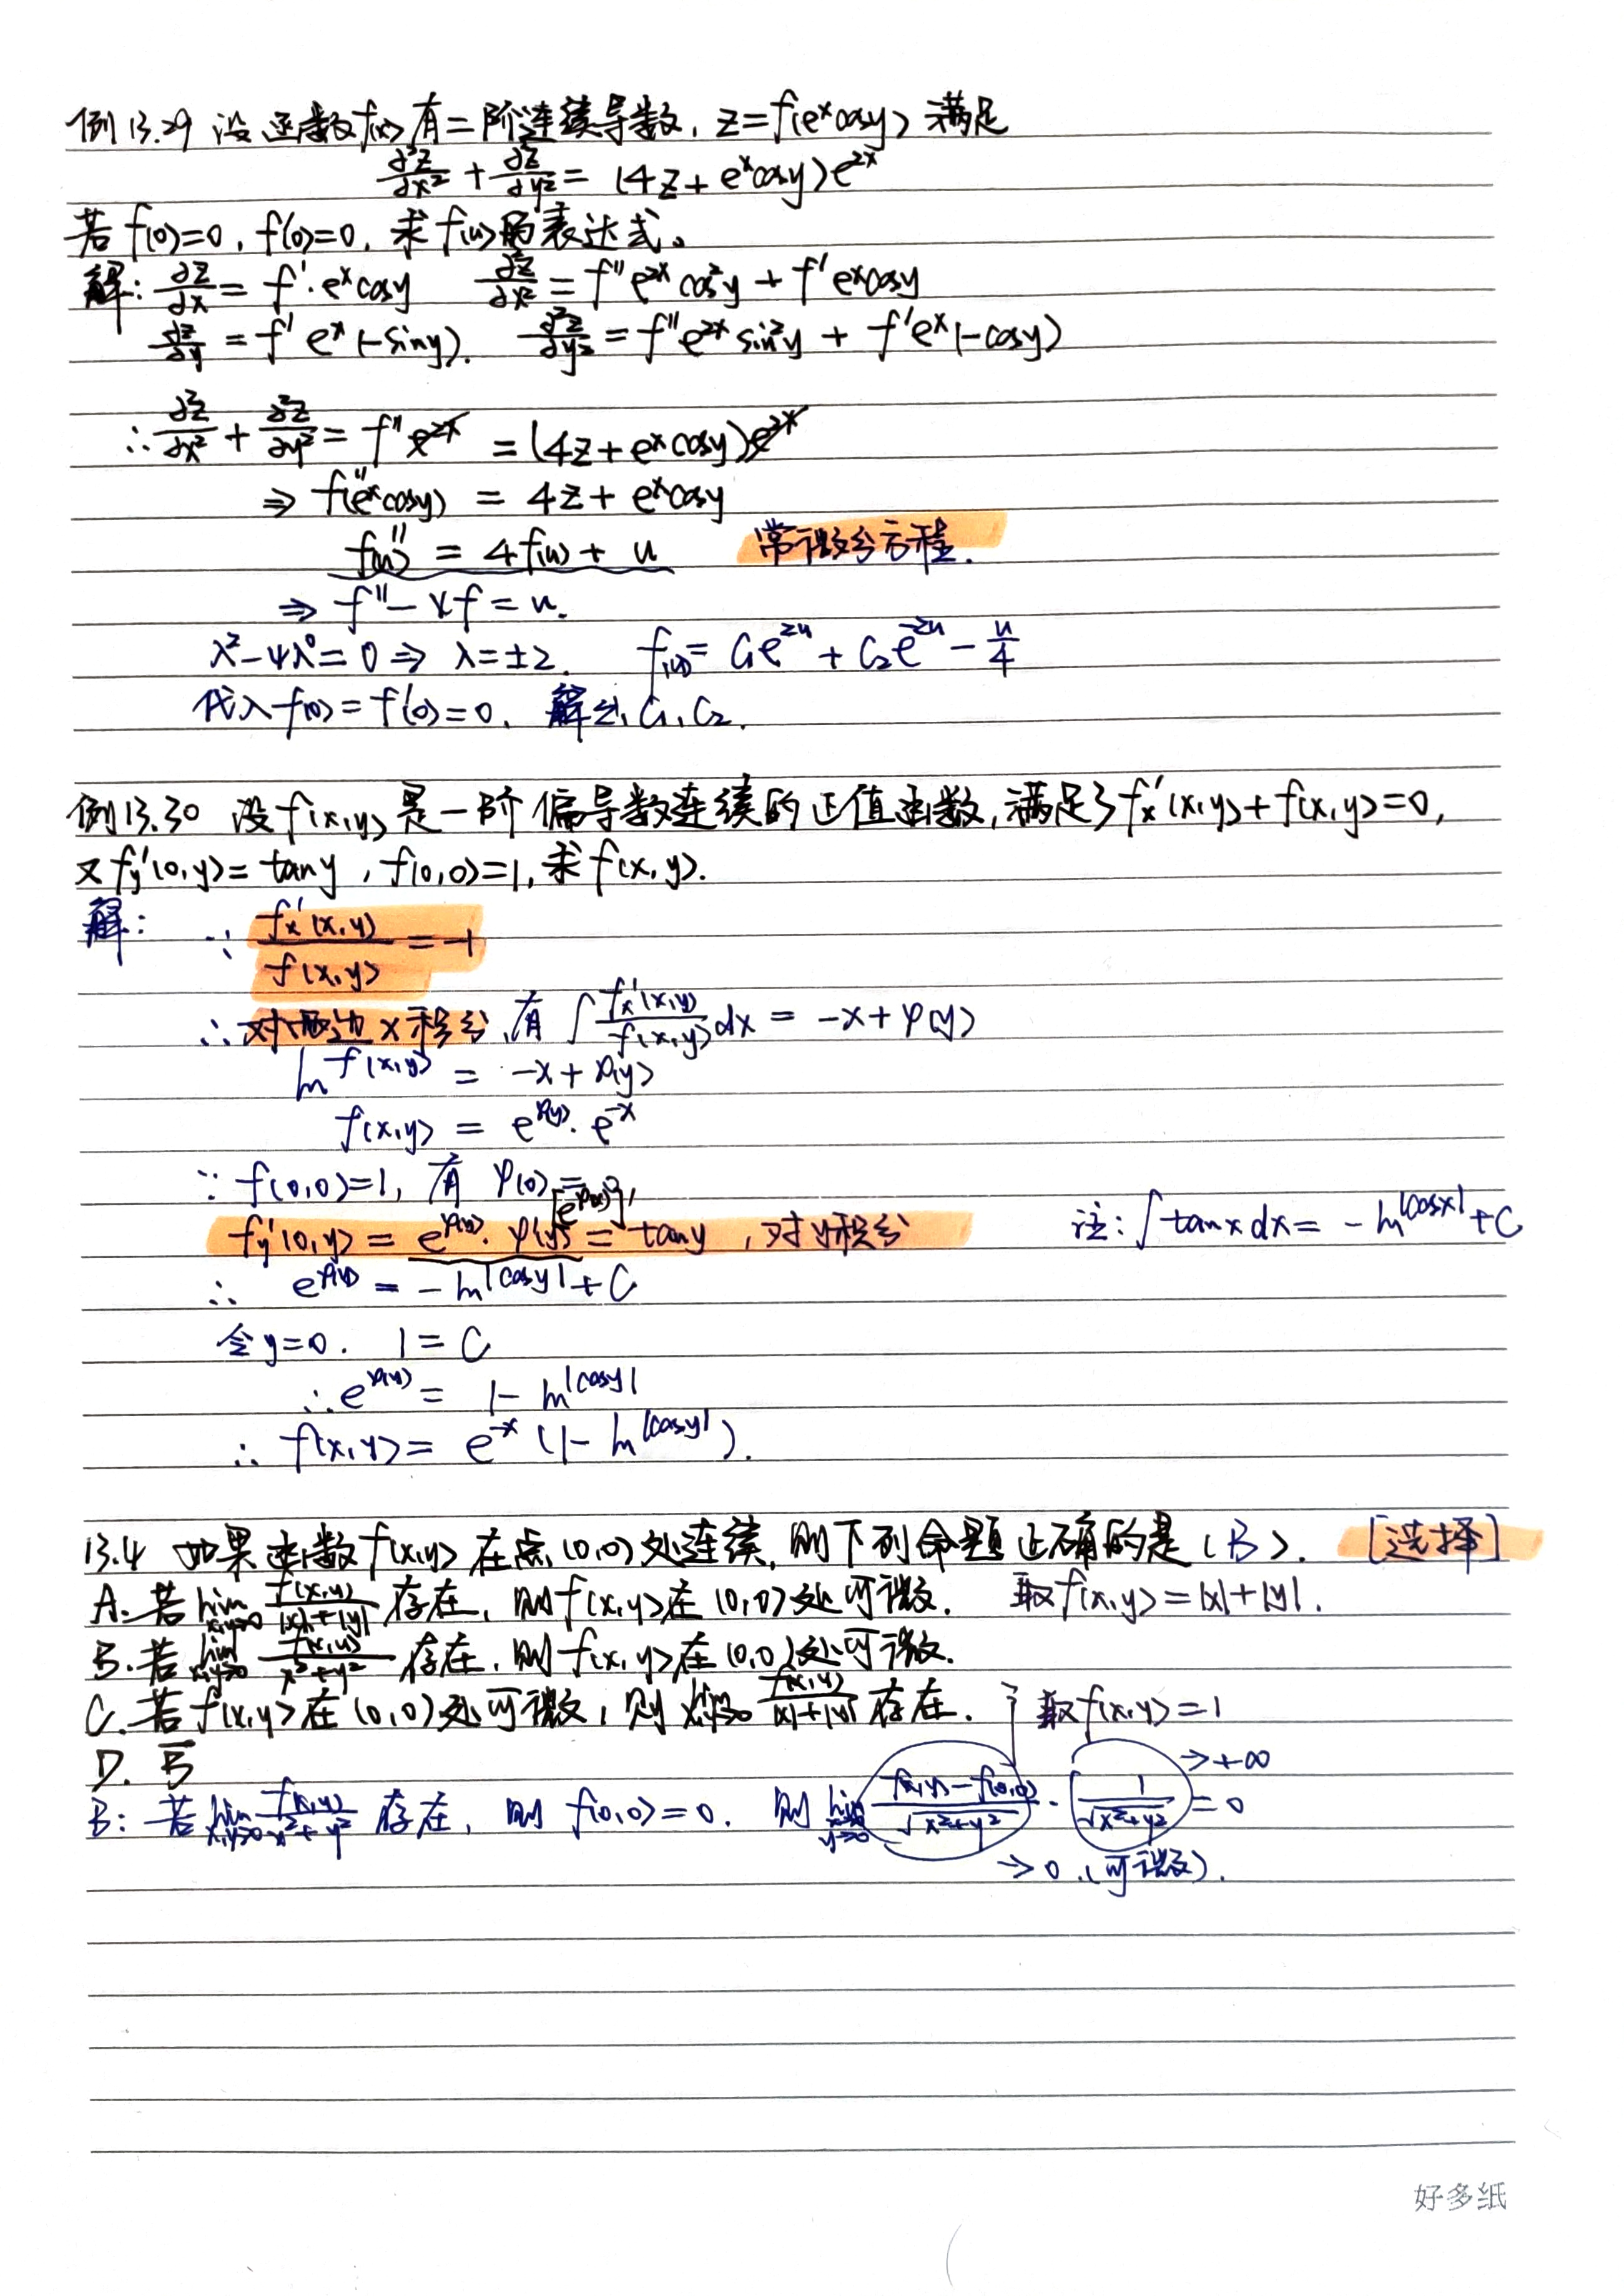 例13.29 设函数f(u)有二阶连续导数, z=f(e^x cosy) 满足
∂²z/∂x² + ∂²z/∂y² = (4z+e^x cosy)e^{2x}
若f(0)=0, f'(0)=0, 求f(u)的表达式。
解: ∂z/∂x = f'·e^x cosy  ∂²z/∂x² = f''e^{2x}cos²y + f'e^x cosy
∂z/∂y = f' e^x(-siny).  ∂²z/∂y² = f''e^{2x}sin²y + f'e^x(-cosy)
∴ ∂²z/∂x² + ∂²z/∂y² = f''e^{2x} = (4z+e^x cosy)e^{2x}
⇒ f''(e^x cosy) = 4z+e^x cosy
f''(u) = 4f(u)+u  常微分方程.
⇒ f''-4f=u.
λ²-4λ⁰=0 ⇒ λ=±2.  f(u)= C₁e^{2u}+C₂e^{-2u}-u/4
代入f(0)=f'(0)=0, 解出C₁、C₂.
例13.30 设f(x,y)是一阶偏导数连续的正值函数,满足了f_x'(x,y)+f(x,y)=0,
又f_y'(0,y)=tany, f(0,0)=1, 求f(x,y).
解: ∵ f_x'(x,y)/f(x,y) = -1
∴ 对两边x积分,有 ∫ f_x'(x,y)/f(x,y) dx = -x+φ(y)
ln f(x,y) = -x+φ(y)
f(x,y) = e^{φ(y)}·e^{-x}
∵ f(0,0)=1, 有 φ(0)=0
[e^{φ(y)}]'
f_y'(0,y) = e^{φ(y)}·φ'(y) = tany, 对y积分  注: ∫tanxdx = -ln|cosx|+C
∴ e^{φ(y)} = -ln|cosy|+C
令y=0. 1=C
∴ e^{φ(y)} = 1-ln|cosy|
∴ f(x,y) = e^{-x}(1-ln|cosy|).
13.4 如果函数f(x,y)在点(0,0)处连续,则下列命题正确的是(B). [选择]
A. 若 lim_{x,y→0} f(x,y)/(|x|+|y|) 存在, 则f(x,y)在(0,0)处可微. 取f(x,y)=|x|+|y|.
B. 若 lim_{x,y→0} f(x,y)/(x²+y²) 存在, 则f(x,y)在(0,0)处可微.
C. 若f(x,y)在(0,0)处可微, 则 lim_{x,y→0} f(x,y)/(|x|+|y|) 存在. 取f(x,y)=1
D.
B: 若 lim_{x,y→0} f(x,y)/(x²+y²) 存在, 则 f(0,0)=0. 则 lim_{x→0 y→0} (f(x,y)-f(0,0))/√(x²+y²) · 1/√(x²+y²) = 0 →+∞
→0 (可微).
好多纸